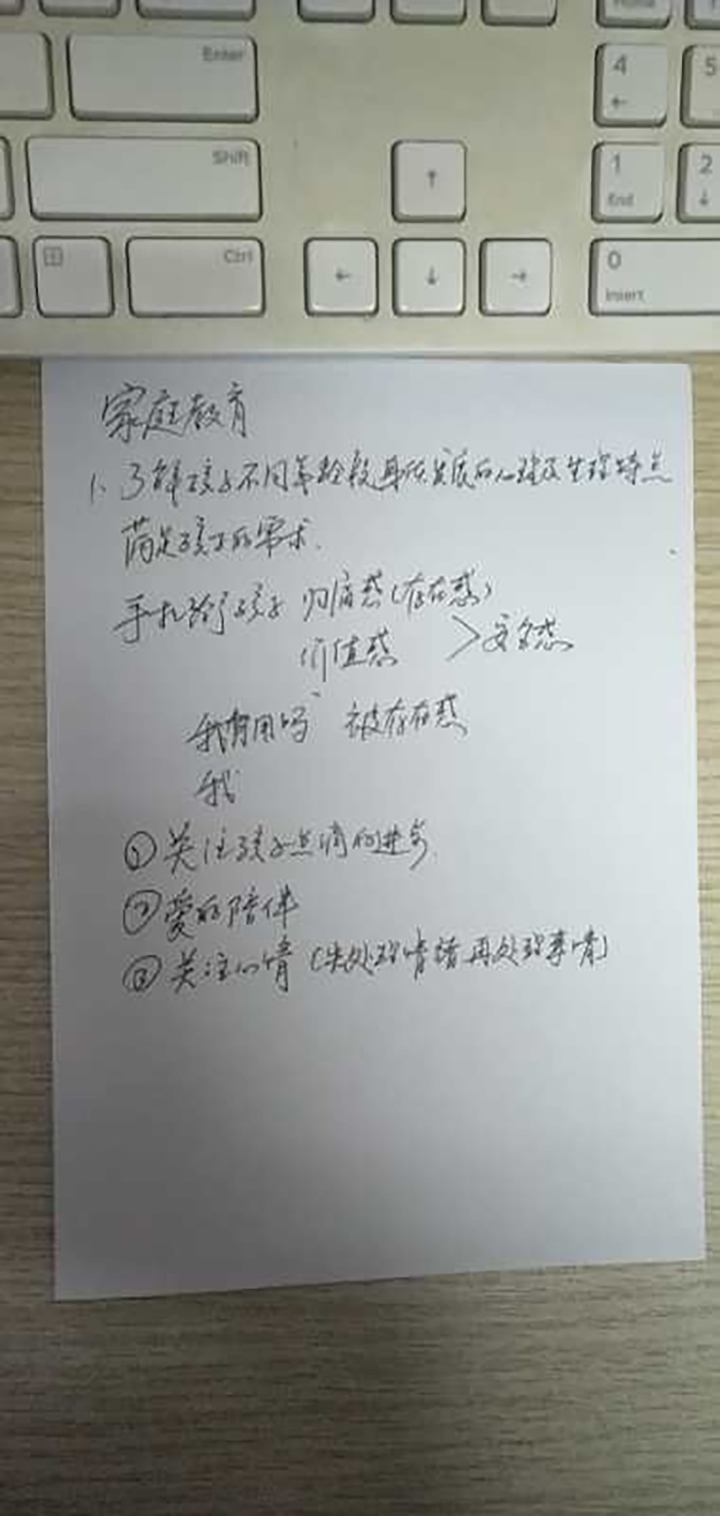 Home
Enter
4
5
←
Shift
↑
1
2
End
↓
Ctrl
←
↓
→
0
Insert
家庭教育
1、了解孩子不同年龄段身体发展的心理及生理特点
满足孩子的需求.
手机给了孩子 归属感(存在感)
价值感 >安全感
我有用吗 被存在感
我
①关注孩子点滴的进步.
②爱的陪伴
③关注心情(先处理情绪再处理事情)